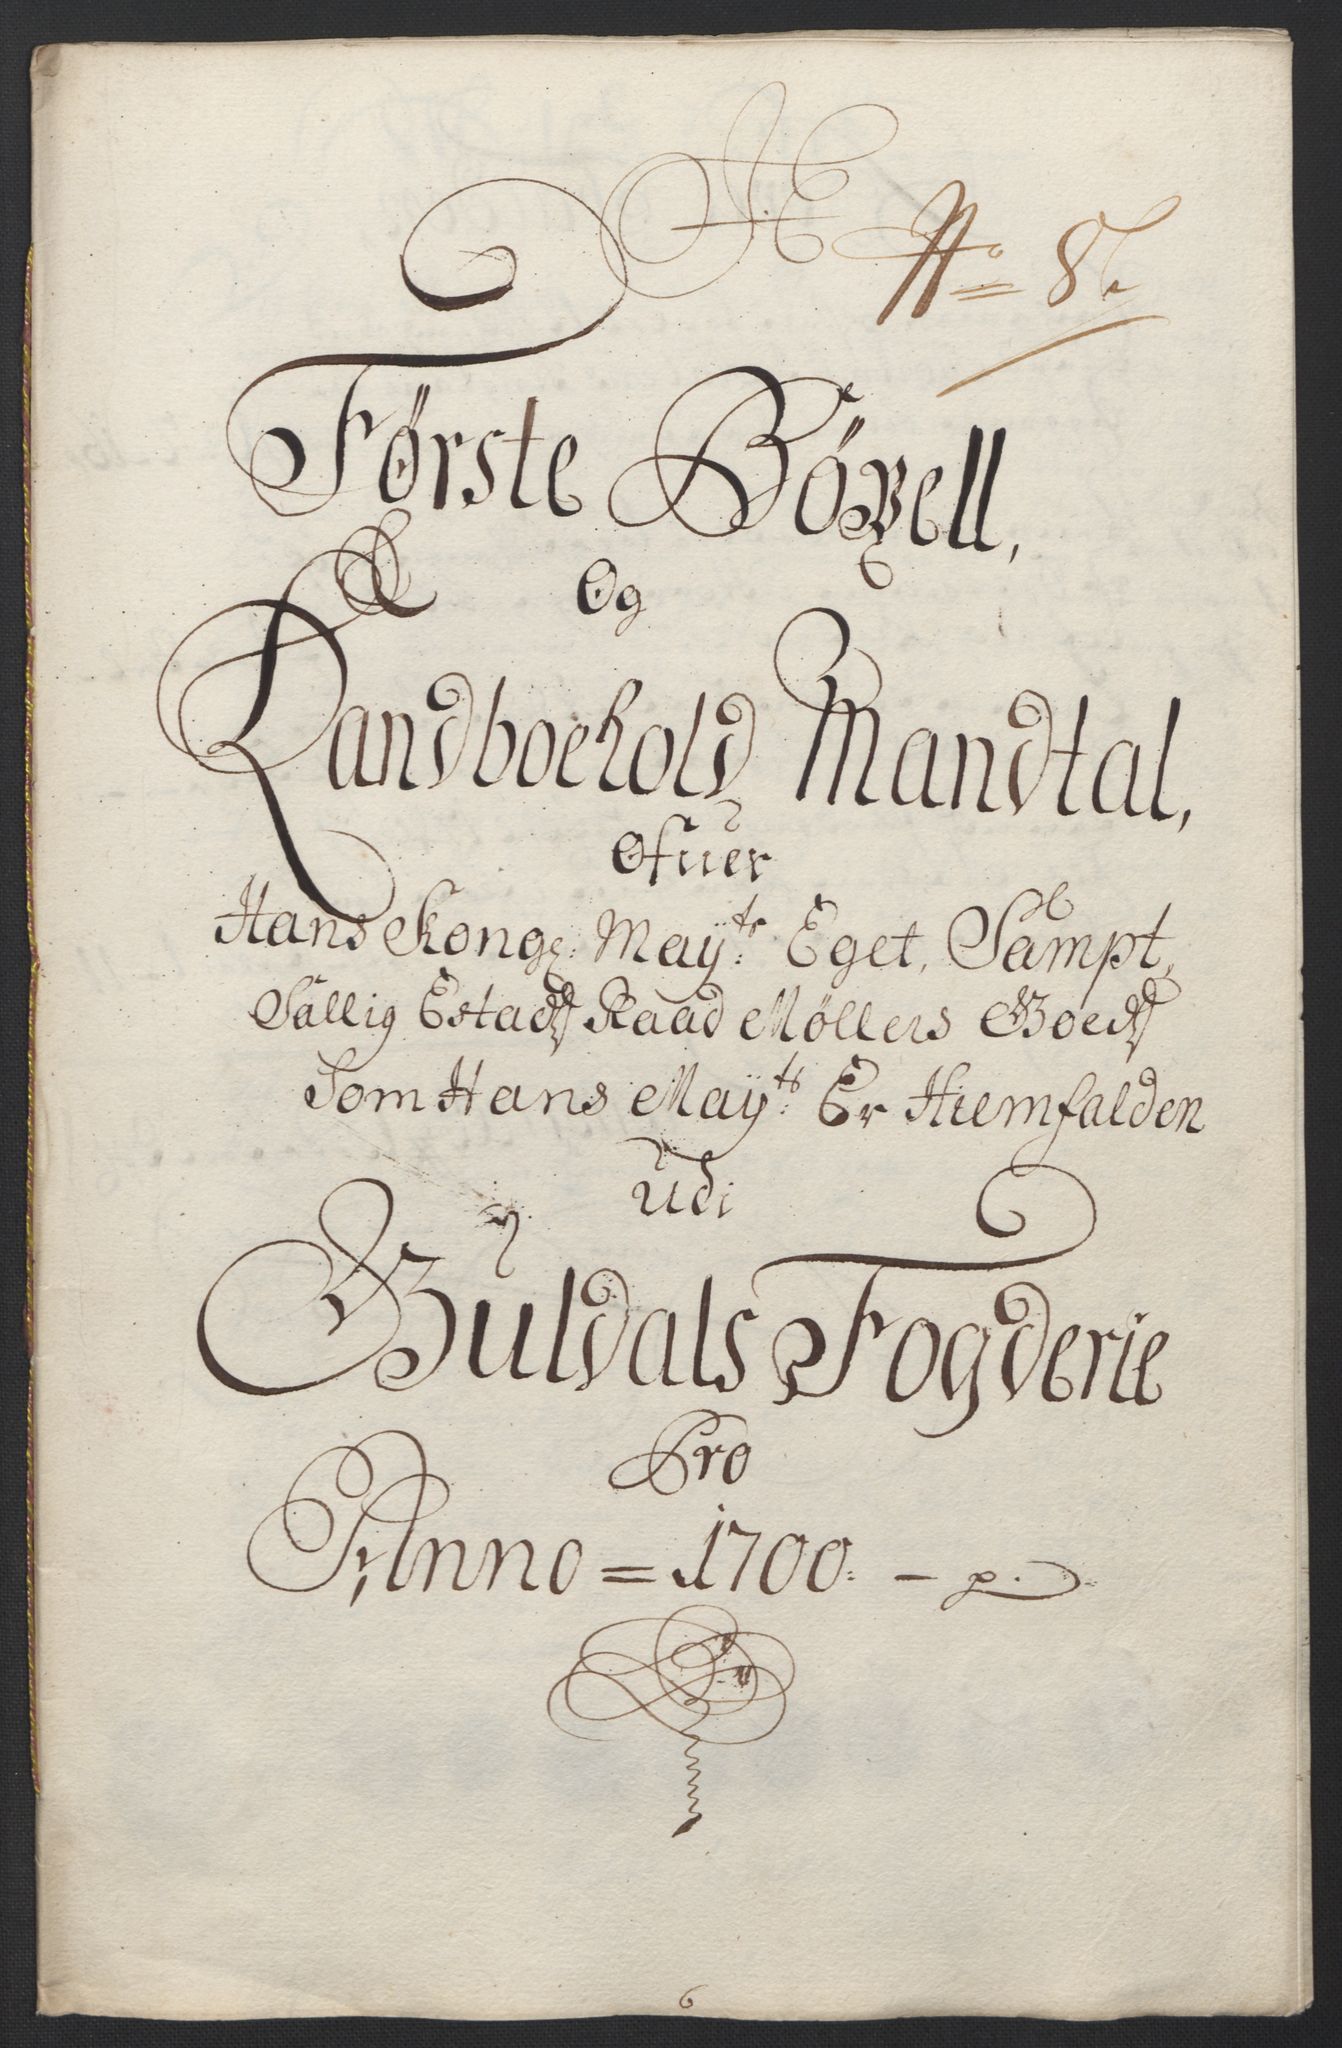 No 8
Første Böxell,
Og
Landboehold Mandtal,
Ofuer
Hans Kong: Mayts: Eget, Sampt,
Sallig Estads Raad Møllers Goeds
Som Hans Mayts: Er Hiemfalden
Udi
Guldals Fogderie
Pro
Anno = 1700. –
6